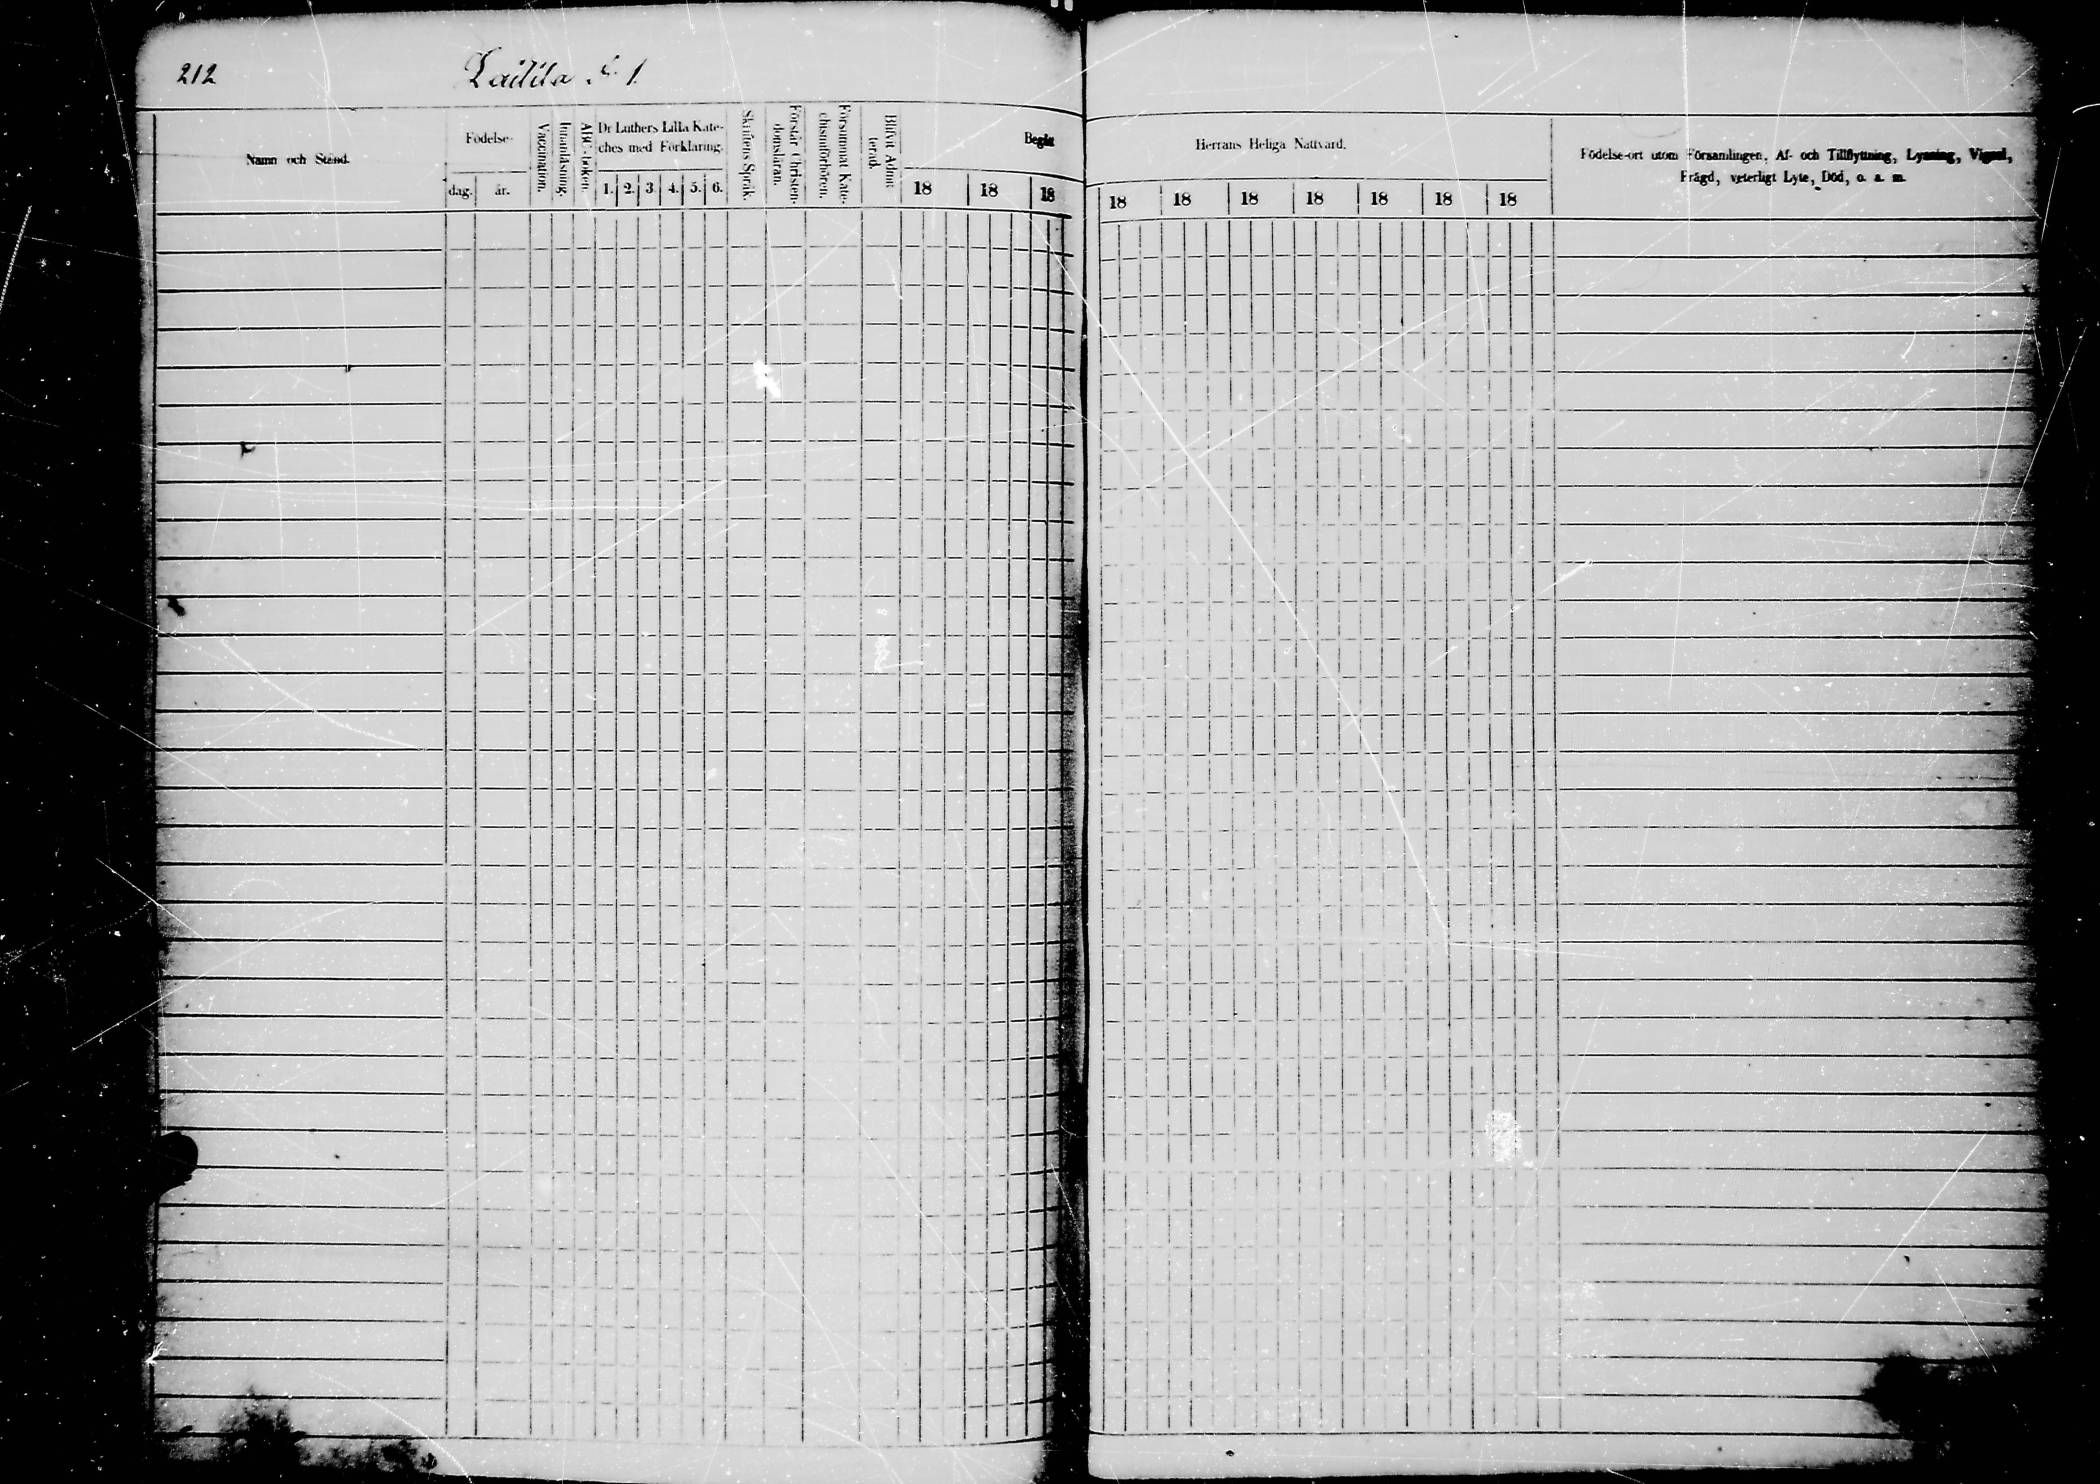 212 Laitila № 1.
Namn och Stånd.
Födelse-
dag. år.
Vaccination.
Innanläsning.
ABC-boken.
Dr Luthers Lilla Kate-
ches med Förklaring.
1. 2. 3. 4. 5. 6.
Skriftens Språk.
Förstår Christen-
domsläran.
Försummat Kate-
chismiförhören.
Blifvit Admit-
terad.
Begått
18 18 18
Herrans Heliga Nattvard.
18 18 18 18 18 18 18
Födelse-ort utom Församlingen, Af- och Tillflyttning, Lysning, Vigsel,
Frägd, veterligt Lyte, Död, o. a. m.